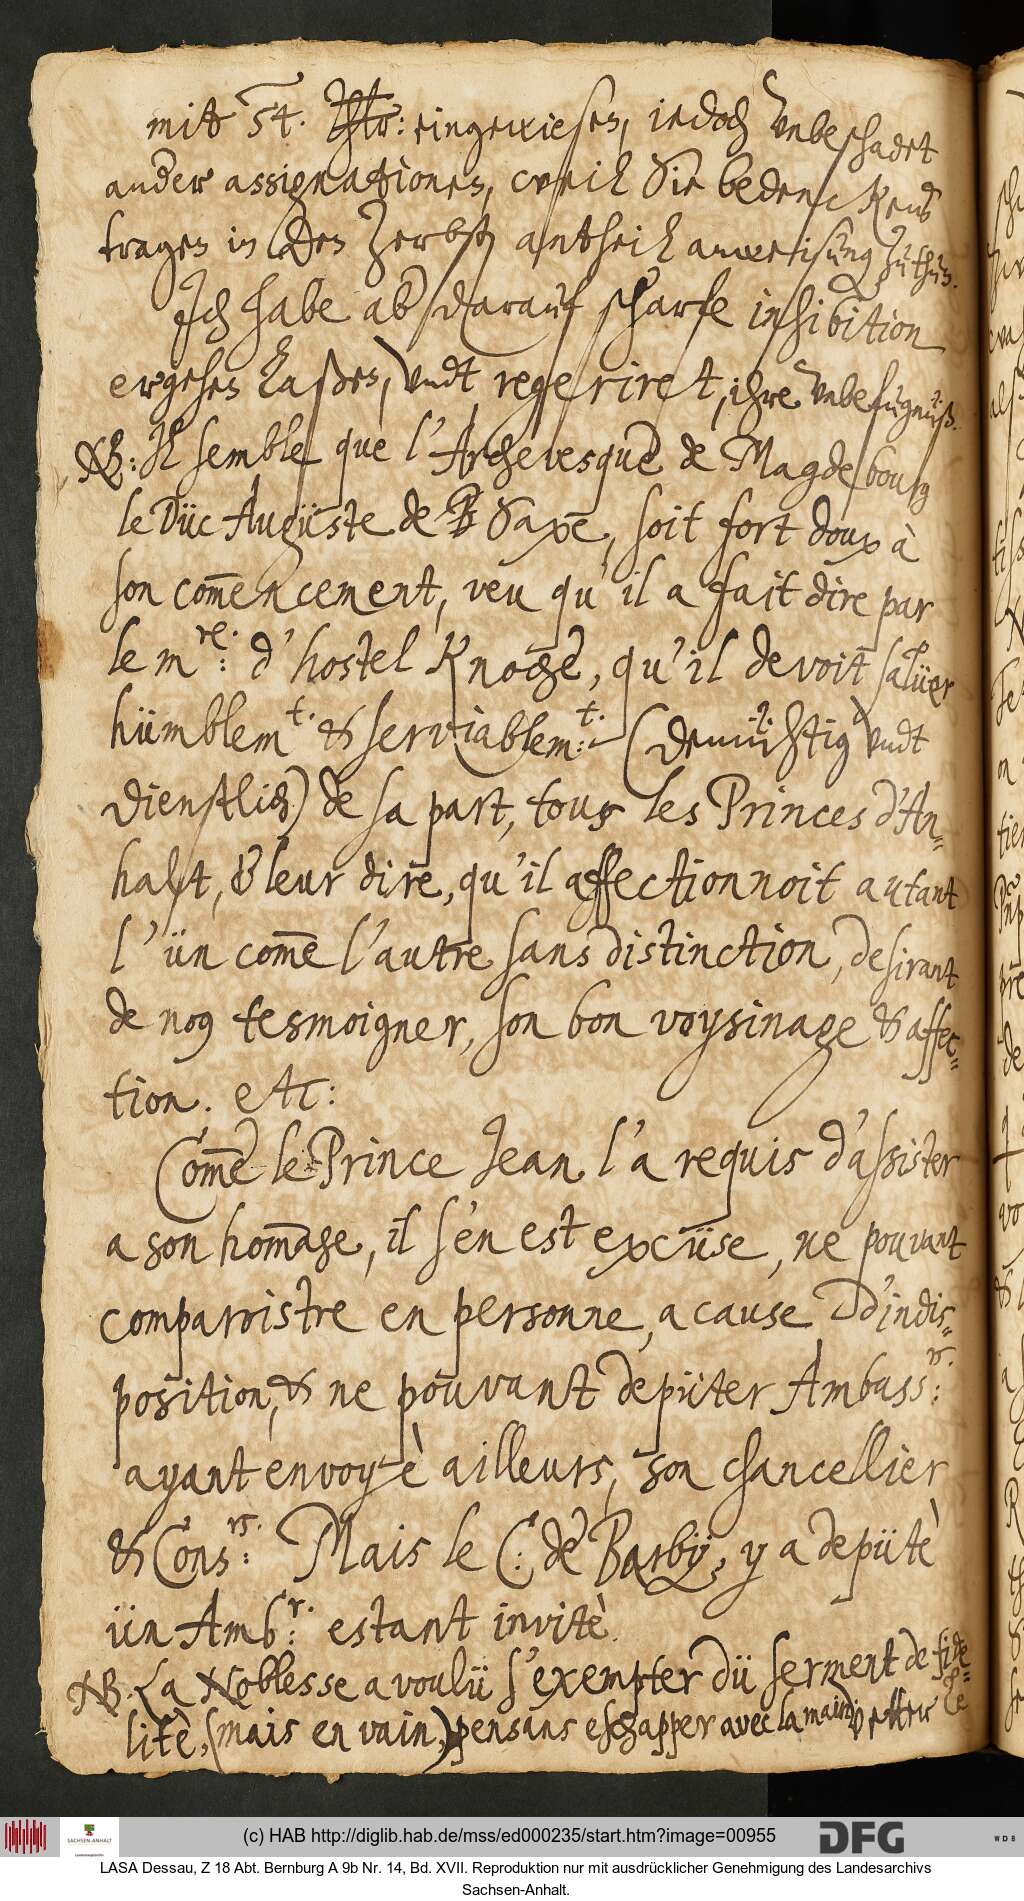 mit 54. Thlr: eingewiesen, iedoch unbeschadet
ander assignationen, weil Sie bedencken
tragen in den Zerbster antheil anweisung zu thun.
Ich habe aber darauf scharfe inhibition
ergehen laßen, undt regeriret, ihre unbefugnüß.
NB: Il semble que l'Archevesque de Magdebourg
le Düc Augüste de Saxe, soit fort doux à
son com̄encement, veu qu'il a fait dire par
le m.re: d'hostel Knoche, qu'il devoit salüer
hümblem.t & serviablem.t: (demühtig undt
dienstlich) de sa part, tous les Princes d'An=
halt, & leur dire, qu'il affectionnoit autant
l'ün com̄e l'autre sans distinction, desirant
de nous tesmoigner, son bon voysinage & affec=
tion. etc:
Com̄e le Prince Jean l'a requis d'assister
a son hom̄age, il s'en est excüse, ne pouvant
comparoistre en personne, a cause d'indis=
position, & ne pouvant depüter Ambass.rs:
ayant envoyè ailleurs, son chancellier
& Cons.rs: Mais le C: de Barbÿ, y a depütè
ün Amb.r: estant invitè.
NB. La Noblesse a voulü s'exempter dü serment de fide=
litè, (mais en vain,) pensans eschapper avec la main: le
(c) HAB http://diglib.hab.de/mss/ed000235/start.htm?image=00955
SACHSEN-ANHALT
DFG
WDB
LASA Dessau, Z 18 Abt. Bernburg A 9b Nr. 14, Bd. XVII. Reproduktion nur mit ausdrücklicher Genehmigung des Landesarchivs
Sachsen-Anhalt.